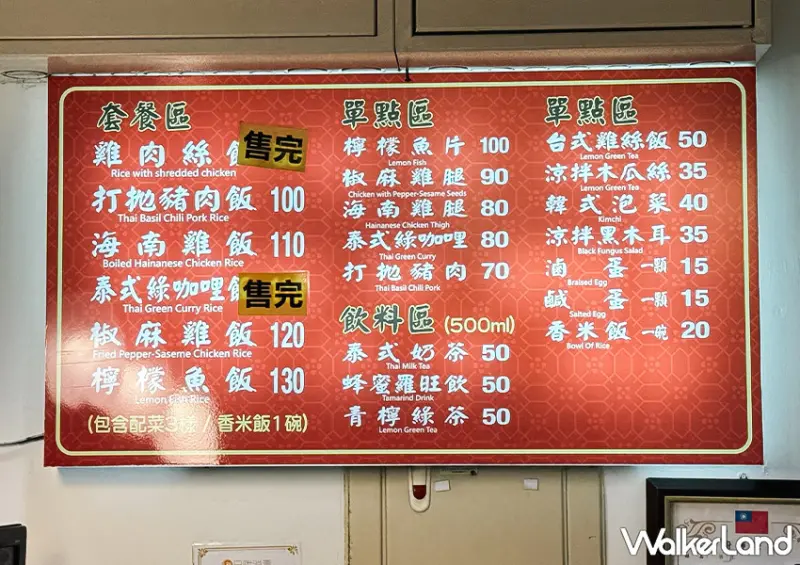 套餐區
雞肉絲 售完
Rice with shredded chicken
打拋豬肉飯 100
Thai Basil Chili Pork Rice
海南雞飯 110
Boiled Hainanese Chicken Rice
泰式綠咖哩 售完
Thai Green Curry Rice
椒麻雞飯 120
Fried Pepper-Saseme Chicken Rice
檸檬魚飯 130
Lemon Fish Rice
(包含配菜3樣 / 香米飯1碗)
單點區
檸檬魚片 100
Lemon Fish
椒麻雞腿 90
Chicken with Pepper-Sesame Seeds
海南雞腿 80
Hainanese Chicken Thigh
泰式綠咖哩 80
Thai Green Curry
打拋豬肉 70
Thai Basil Chili Pork
飲料區 (500ml)
泰式奶茶 50
Thai Milk Tea
蜂蜜羅旺飲 50
Tamarind Drink
青檸綠茶 50
Lemon Green Tea
單點區
台式雞絲飯 50
Lemon Green Tea
涼拌木瓜絲 35
Lemon Green Tea
韓式泡菜 40
Kimchi
涼拌黑木耳 35
Black Fungus Salad
滷蛋 一顆 15
Braised Egg
鹹蛋 一顆 15
Salted Egg
香米飯 一碗 20
Bowl Of Rice
WalkerLand